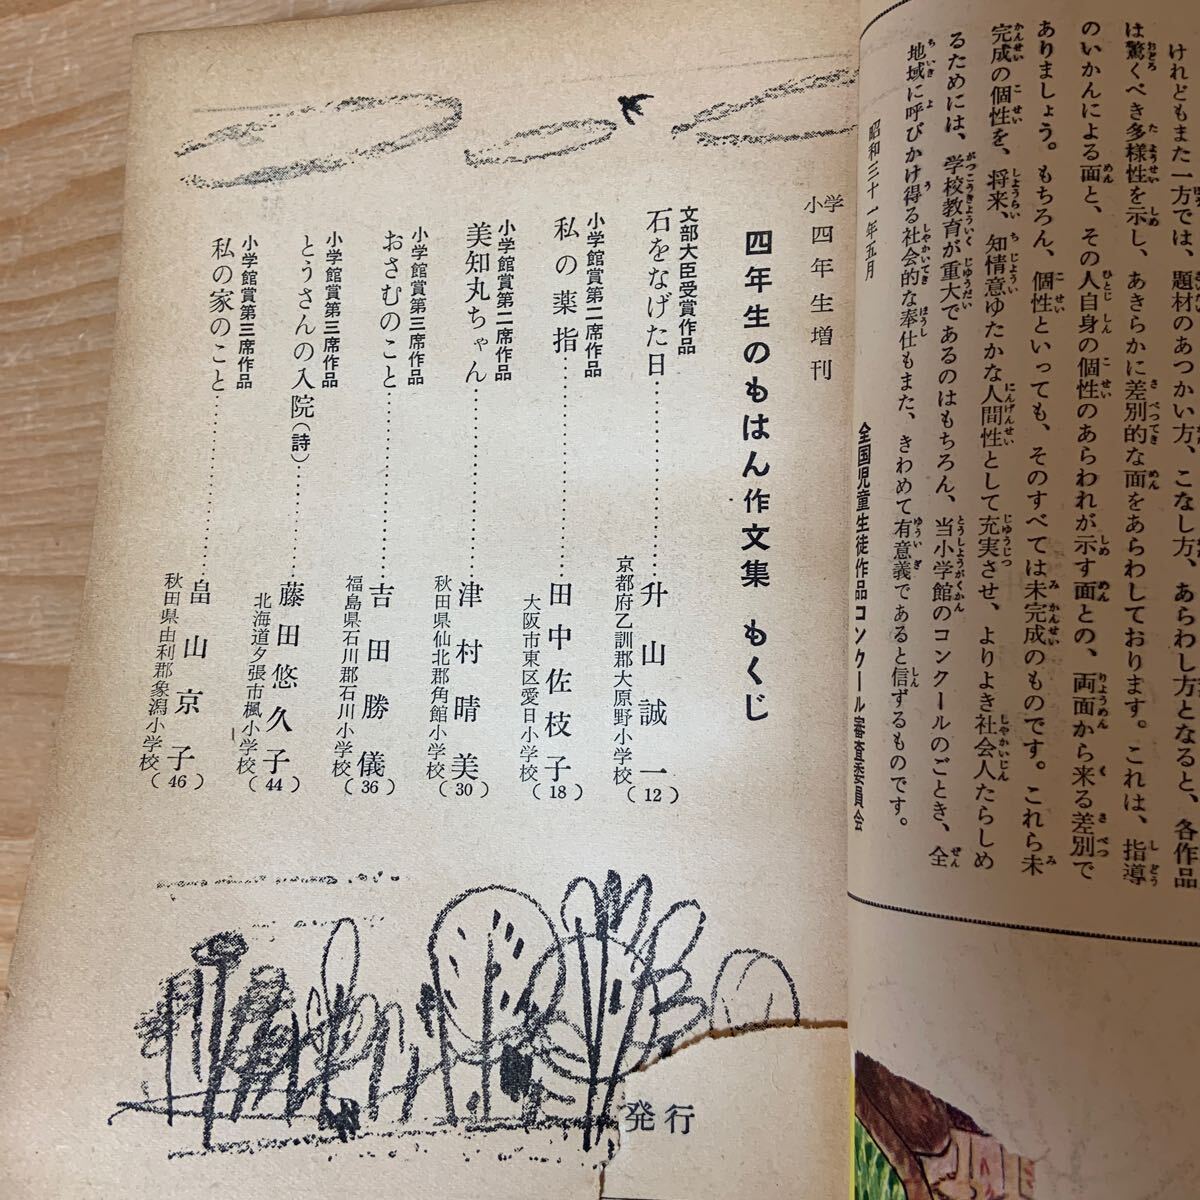 けれどもまた一方では、題材のあつかい方、こなし方、あらわし方となると、各作品
は驚くべき多様性を示し、あきらかに差別的な面をあらわしております。これは、指導
のいかんによる面と、その人自身の個性のあらわれが示す面との、両面から来る差別で
ありましょう。もちろん、個性といっても、そのすべては未完成のものです。これら未
完成の個性を、将来、知情意ゆたかな人間性として充実させ、よりよき社会人たらしめ
るためには、学校教育が重大であるのはもちろん、当小学館のコンクールのごとき、全
地域に呼びかけ得る社会的な奉仕もまた、きわめて有意義であると信ずるものです。
昭和三十一年五月
全国児童生徒作品コンクール審査委員会
小学四年生増刊
四年生のもはん作文集 もくじ
文部大臣受賞作品
石をなげた日……升山誠一(12)
京都府乙訓郡大原野小学校
小学館賞第二席作品
私の薬指……田中佐枝子(18)
大阪市東区愛日小学校
小学館賞第二席作品
美知丸ちゃん……津村晴美(30)
秋田県仙北郡角館小学校
小学館賞第三席作品
おさむのこと……吉田勝儀(36)
福島県石川郡石川小学校
小学館賞第三席作品
とうさんの入院(詩)……藤田悠久子(44)
北海道夕張市楓小学校
小学館賞第三席作品
私の家のこと……畠山京子(46)
秋田県由利郡象潟小学校
発行